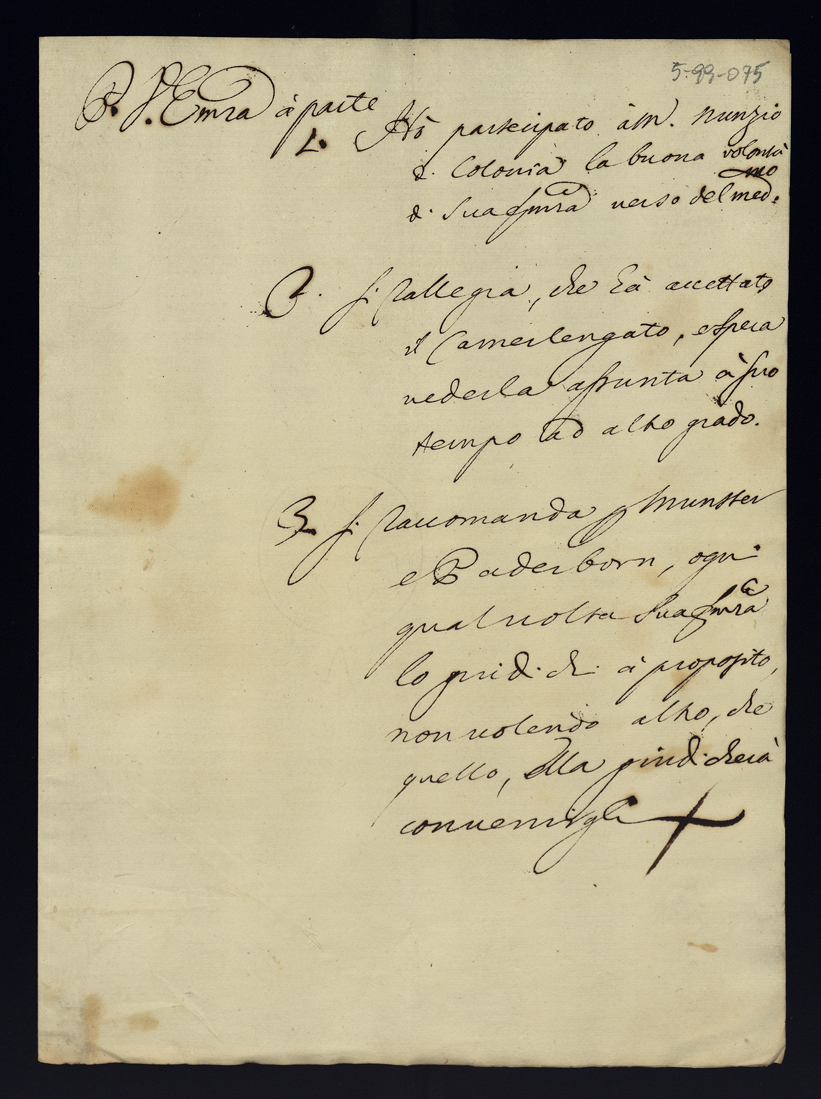 5-99-075
P. S. Emza à parte
1. Hò partecipato à M. Nunzio
d. Colonia la buona volontà
d. Sua Emza verso del med.mo
2. S. rallegra, che hà accettato
il Camerlengato, e spera
vederla assunta à suo
tempo ad altro grado.
3. S. raccomanda p Munster
e Paderborn, ogni
qual volta Sua Emza
lo giudichi à proposito,
non volendo altro, che
quello, Ella giudicherà
convenirgli